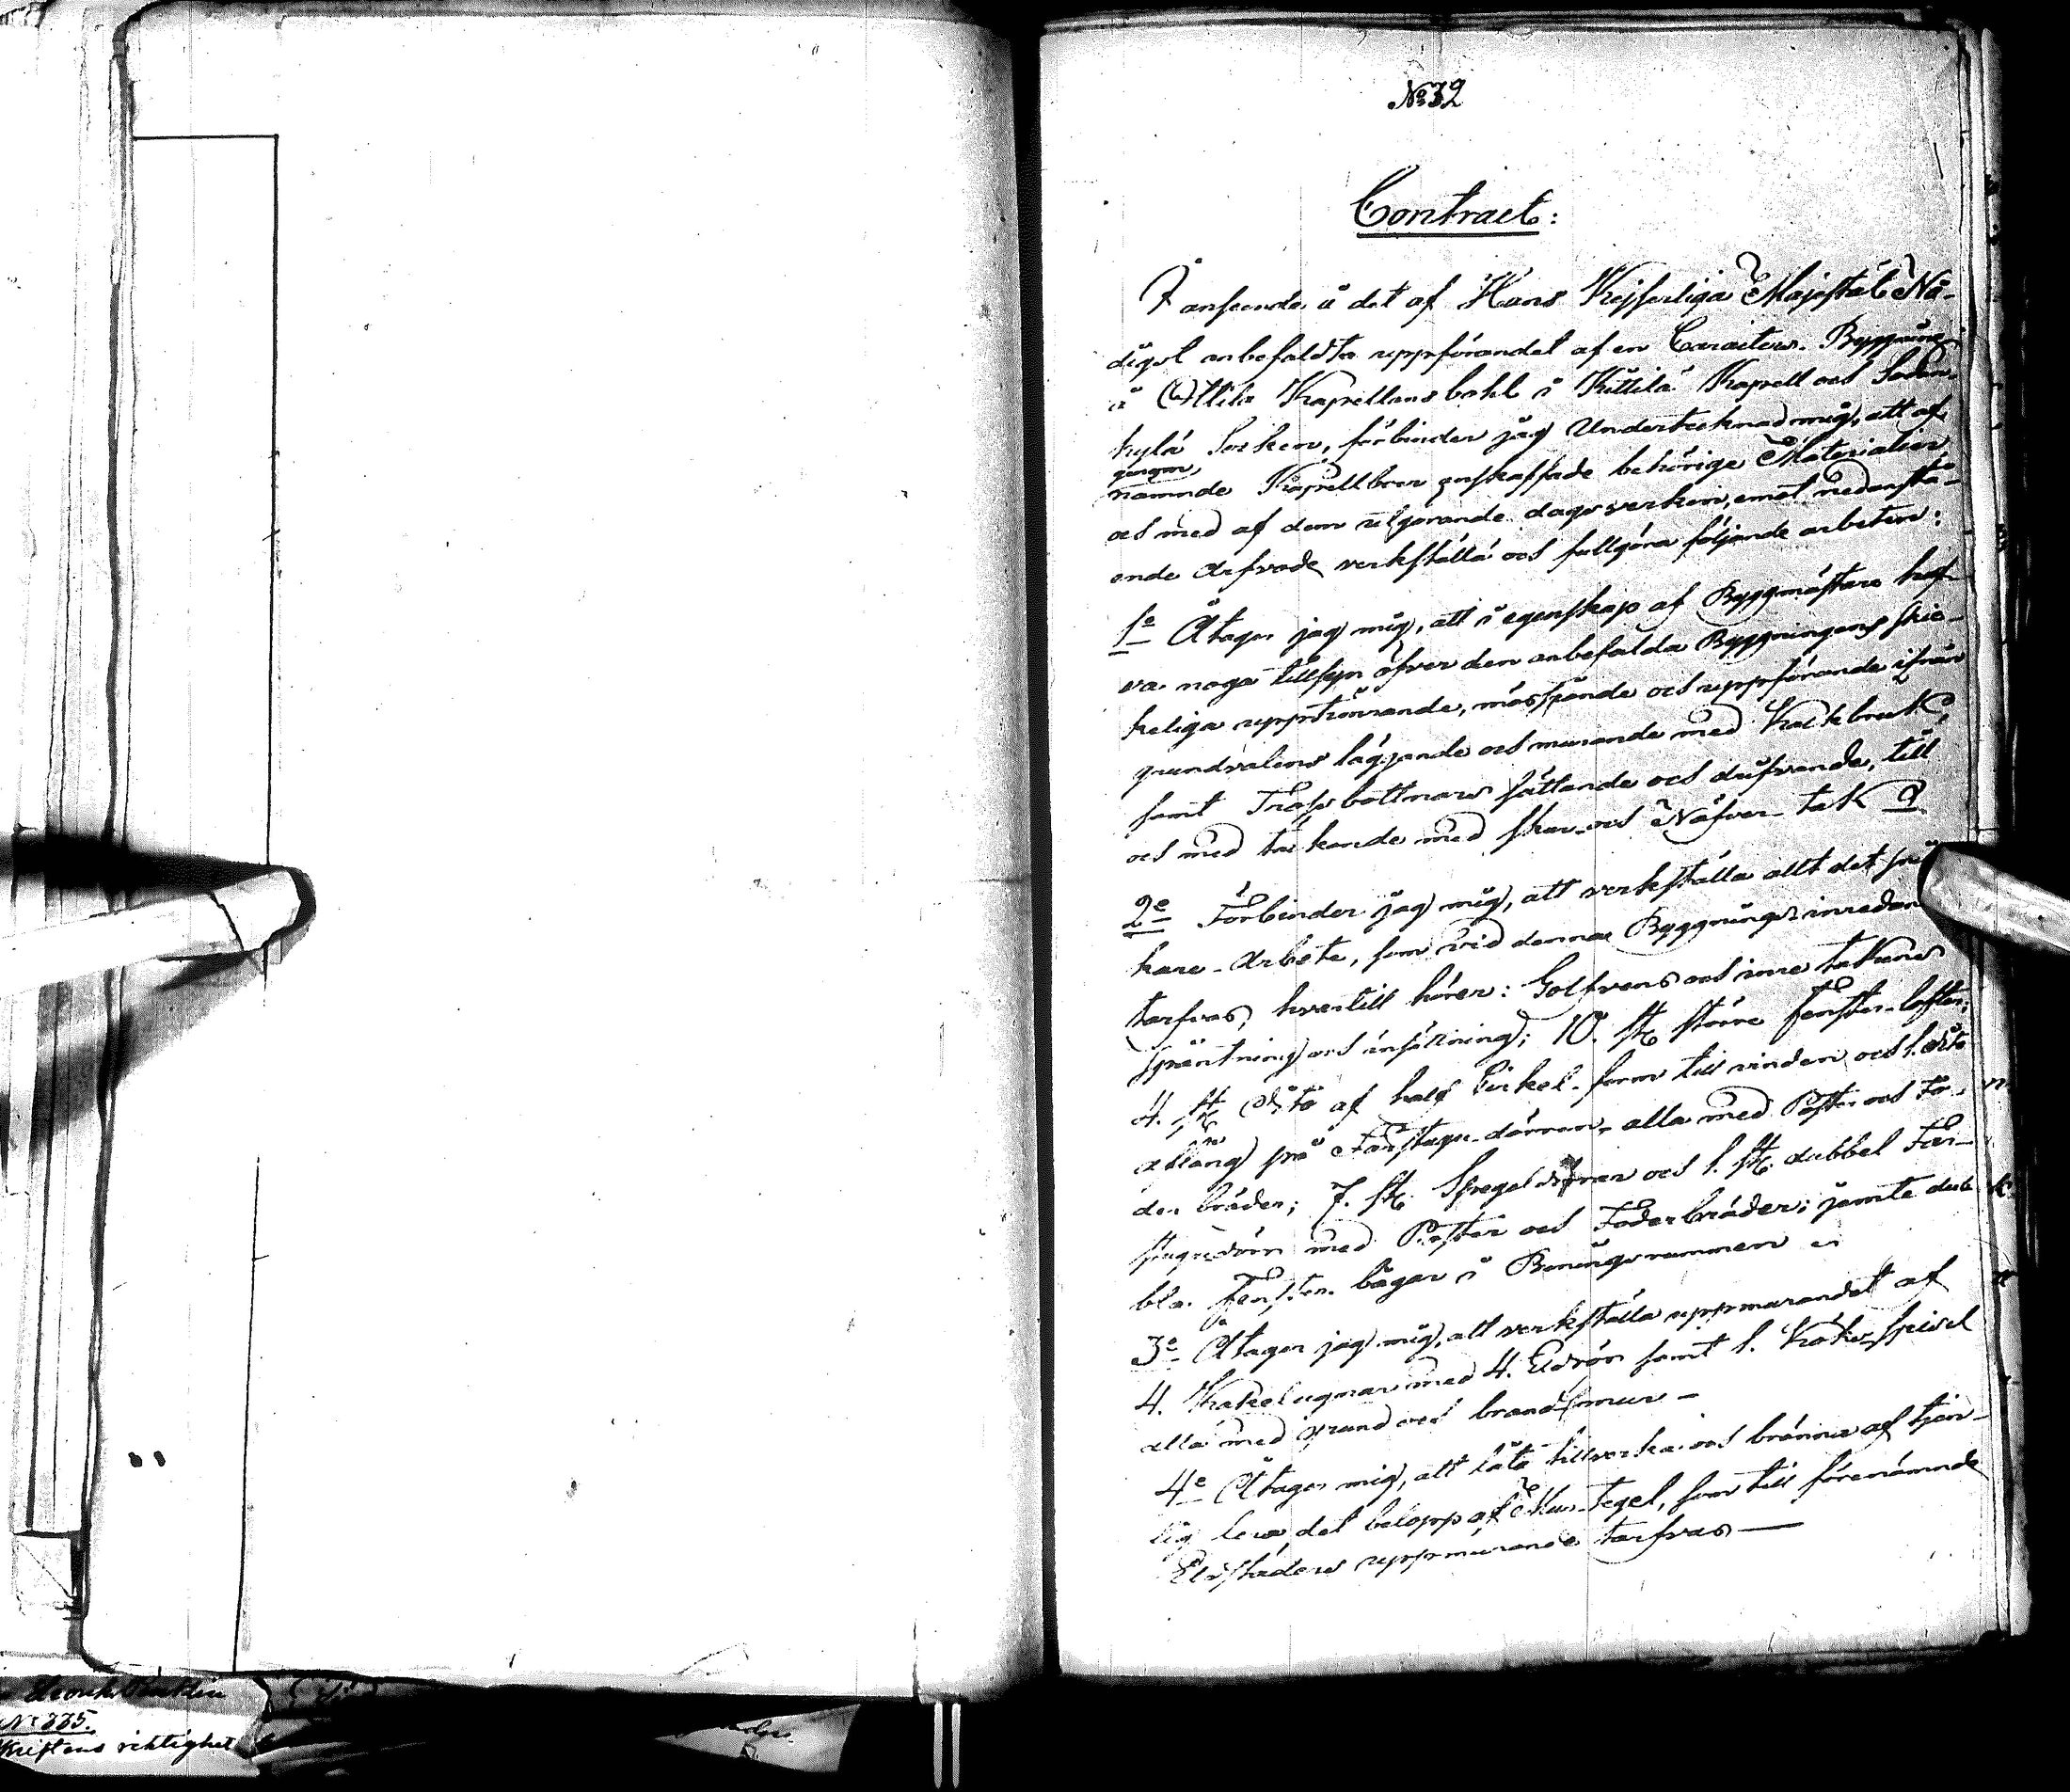 No 32
Contract:
I anseende å det af Hans Kejserliga Majestät Nå-
digst anbefaldta uppförandet af en Caracters-Byggning
å Ottila Kapellans bohl i Kittilä Kapell och Sodan-
kylä Socken, förbinder jag Undertecknad mig, att af
genom
nämnde Kapellboer anskaffade behörige Materialier
och med af dem utgörande dagsverken, emot nedanstå-
ende Arfvode verkställa och fullgöra följande arbeten:
1e Åtager jag mig, att i egenskap af Byggmästare haf-
va noga tillsyn öfver den anbefalda Byggningens skic-
keliga upptimrande, mossande och uppförande ifrån
grundvalens läggande och murande med Kalkbruk,
samt Trossbottnars sättande och dufvande, till
och med täckande med skar- och Näfver-tak
2e Förbinder jag mig, att verkställa allt det snic-
kare-Arbete, som vid denna Byggnings inredan
tarfvas, hvartill hörer: Golfvens och inre takens
spåntning och insättning; 10. st. större fenster-lufter;
4. st. Dito af half Cirkel-form till vinden och 1. Dito
aflång på Farstugu-dörren, alla med Poster och Fo-
der bräder; 7. st. Spegel dörrar och 1. st. dubbel Far-
stugudörr med Poster och Foderbräder; jämte dub-
bla Fenster bågar i Boningsrummen
3e Åtager jag mig, att verkställa uppmurandet af
4. Kakelugnar med 4. Eldrör samt 1. Köks-speisel
alla med grund och brandmur —
4e Åtager mig, att låta tillverka och bränna af tjen-
lig lera, det belopp af Mur-Tegel, som till förenämnde
Eldstäders uppmurande tarfvas —
No 335.
riktighet